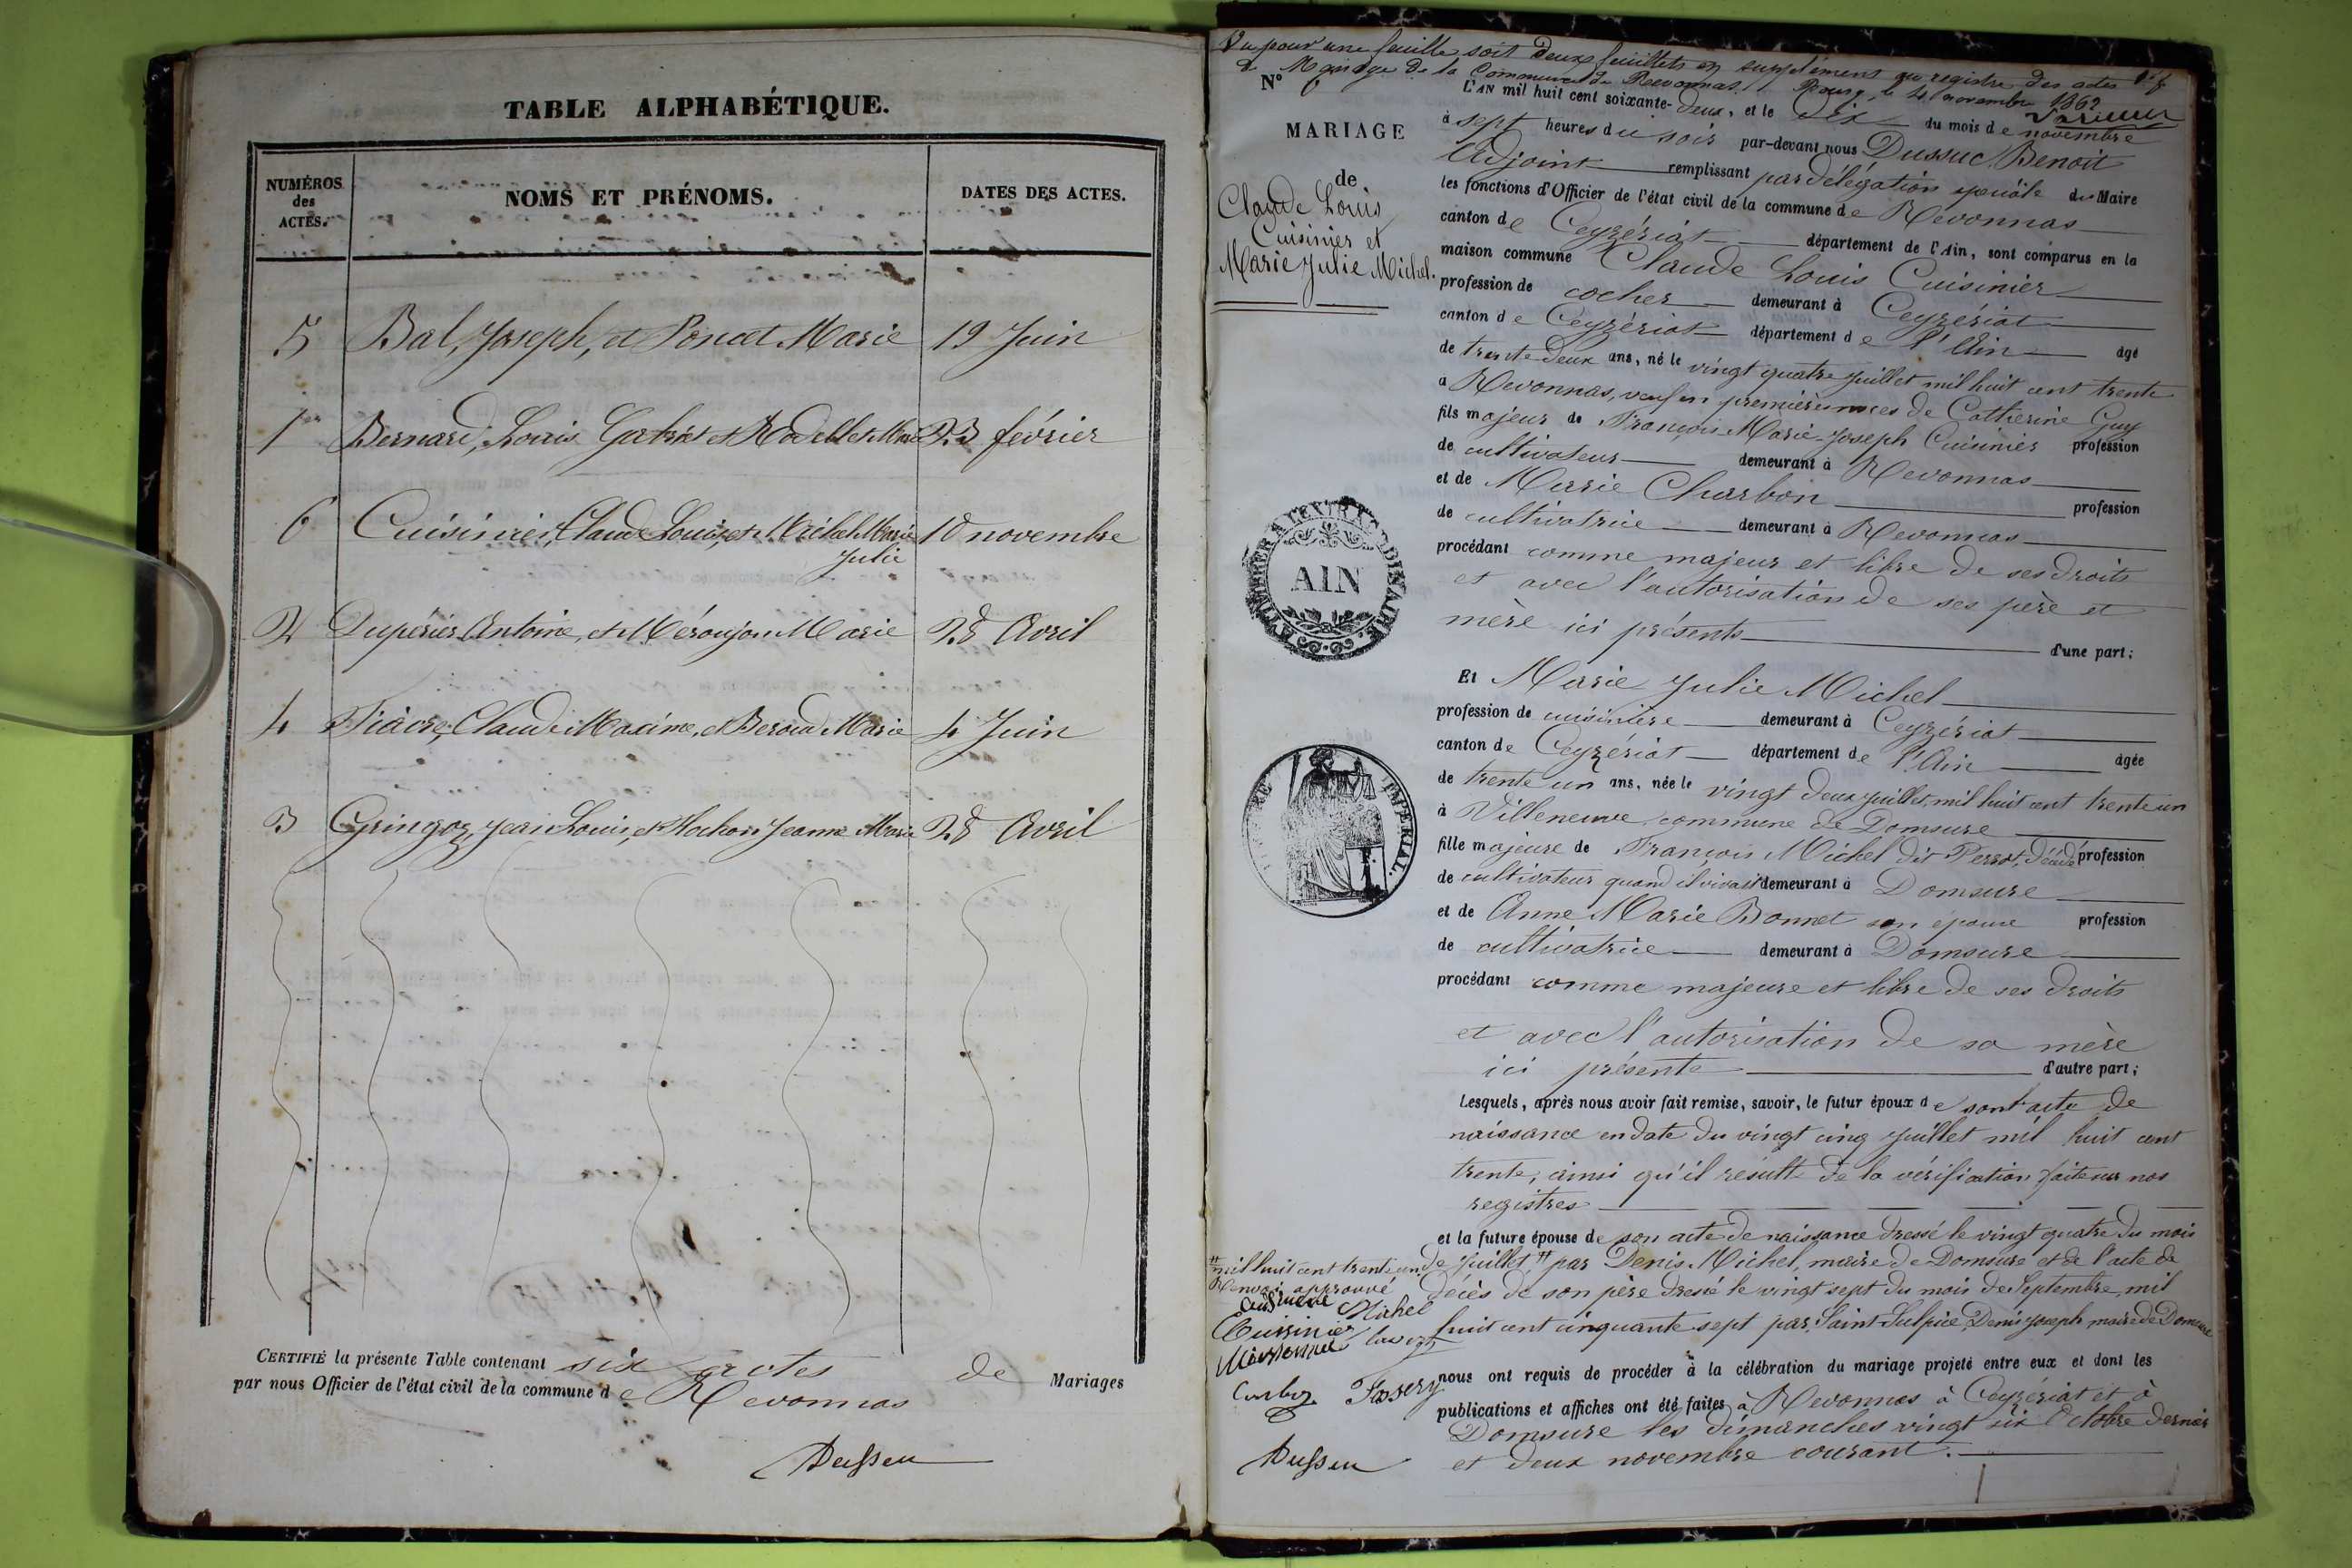 TABLE ALPHABÉTIQUE.
NUMÉROS des ACTES.
NOMS ET PRÉNOMS.
DATES DES ACTES.
5 Bal, Joseph, et Poncet Marie 19 Juin
1er Bernard, Louis et Marie 23 février
6 Cuisinier, Claude Louis, et Michel Marie 10 novembre
Julie
2 Dupérier Antoine, et Marie 28 Avril
4 Fiacre, Claude Maxime, et Beroud Marie 4 Juin
3 Gringoz, Jean Louis, et Jeanne Marie 28 Avril
CERTIFIÉ la présente Table contenant six actes de Mariages
par nous Officier de l'état civil de la commune de Revonnas
Dussuc
Vu pour une feuille soit deux feuillets en supplément au registre des actes
de Mariage de la Commune de Revonnas. Bourg, le 4 novembre 1862
N° 6
MARIAGE
de
Claude Louis
Cuisinier et
Marie Julie Michel.
L'AN mil huit cent soixante-deux, et le dix du mois de novembre
à sept heures du soir par-devant nous Dussuc Benoit
Adjoint remplissant par délégation spéciale du Maire
les fonctions d'Officier de l'état civil de la commune de Revonnas
canton de Ceyzériat département de l'Ain, sont comparus en la
maison commune Claude Louis Cuisinier
profession de cocher demeurant à Ceyzériat
canton de Ceyzériat département de l'Ain âgé
de trente deux ans, né le vingt quatre juillet mil huit cent trente
à Revonnas, veuf en premières noces de Catherine Guy
fils majeur de François Marie Joseph Cuisinier profession
de cultivateur demeurant à Revonnas
et de Marie Charbon profession
de cultivatrice demeurant à Revonnas
procédant comme majeur et libre de ses droits
et avec l'autorisation de ses père et
mère ici présents d'une part;
TIMBRE EXTRAORDINAIRE
AIN
Et Marie Julie Michel
profession de cuisinière demeurant à Ceyzériat
canton de Ceyzériat département de l'Ain âgée
de trente un ans, née le vingt deux juillet mil huit cent trente un
à Villeneuve, commune de Domsure
fille majeure de François Michel dit Perrot, décédé profession
de cultivateur quand il vivait demeurant à Domsure
et de Anne Marie Bonnet son épouse profession
de cultivatrice demeurant à Domsure
procédant comme majeure et libre de ses droits
et avec l'autorisation de sa mère
ici présente d'autre part;
TIMBRE IMPERIAL.
Lesquels, après nous avoir fait remise, savoir, le futur époux de sont acte de
naissance en date du vingt cinq juillet mil huit cent
trente, ainsi qu'il résulte de la vérification faite sur nos
registres
et la future épouse de son acte de naissance dressé le vingt quatre du mois
de juillet # par Denis Michel, maire de Domsure et de l'acte de
décès de son père dressé le vingt sept du mois de Septembre, mil
huit cent cinquante sept par, Saint Sulpice, Denis Joseph maire de Domsure
# mil huit cent trente un
Renvoi approuvé
Michel
Cuisinier
Dussuc
nous ont requis de procéder à la célébration du mariage projeté entre eux et dont les
publications et affiches ont été faites à Revonnas à Ceyzériat et à
Domsure les dimanches vingt six Octobre dernier
et deux novembre courant.